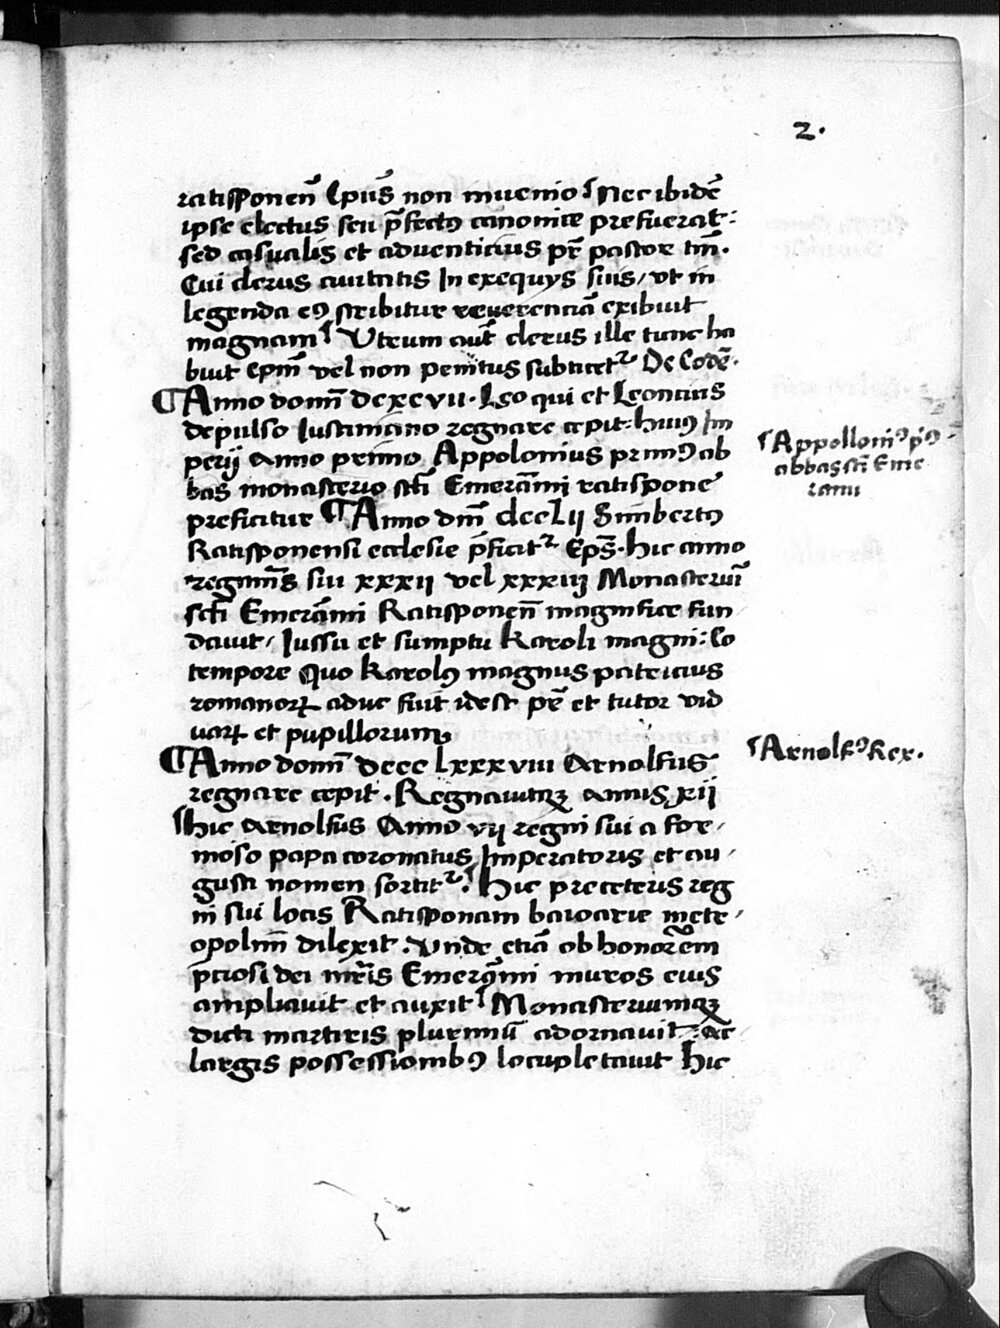 2.
ratisponen̄ Ep̄us non inuenio Nec ibidē
ipse electus seu p̄fectꝰ canonice prefuerat:
sed casualis et aduenticius pr̄ pastor tm̄.
Cui clerus ciuitatis In exequys suis, vt in
legenda eiꝰ scribitur reuerenciā exibuit
magnam Vtrum aut̄ clerus ille tunc ha
buit Ep̄m vel non penitus subticetr De Eodē.
¶ Anno domī dcxcvii. Leo qui et Leoncius
depulso Iustiniano regnare cepit: huiꝰ Im
perij anno primo Appolonius primꝰ ab
bas monasterio scī Emerāmi ratispone
preficitur ¶ Anno dm̄ dccLij Simbertꝰ
Ratisponensi ecclesie p̄ficitr Ep̄s. hic anno
regiminis sui xxxii vel xxxiij Monasteriū
scī Emerāmi Ratisponen̄ magnifice fun
dauit, Iussu et sumptu Karoli magni: Eo
tempore Quo Karolꝰ magnus patricius
romanorꝝ aduc fuit idest pr̄ et tutor vid
uarꝝ et pupillorum
¶ Anno domī dccc Lxxxviii Arnolfus
regnare cepit. Regnauitqꝫ annis xii
hic Arnolfus Anno vij regni sui a for,
moso papa coronatus Imperatoris et au,
gusti nomen sortitr. Hic pre ceteris reg
ni sui locis Ratisponam baioarie metr,
opolim̄ dilexit. Vnde etiā ob honorem
p̄ciosi dei mr̄is Emerāmi muros eius
ampliauit et auxit Monasteriumqꝫ
dicti martiris plurimū adornauit: ac
largis possessionibꝰ locupletauit Hic
Appolloniꝰ pꝰ
abbas scī Eme
rami
Arnolfꝰ Rex.